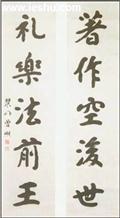 www.ieshu.com
著作空後世
礼樂法前王